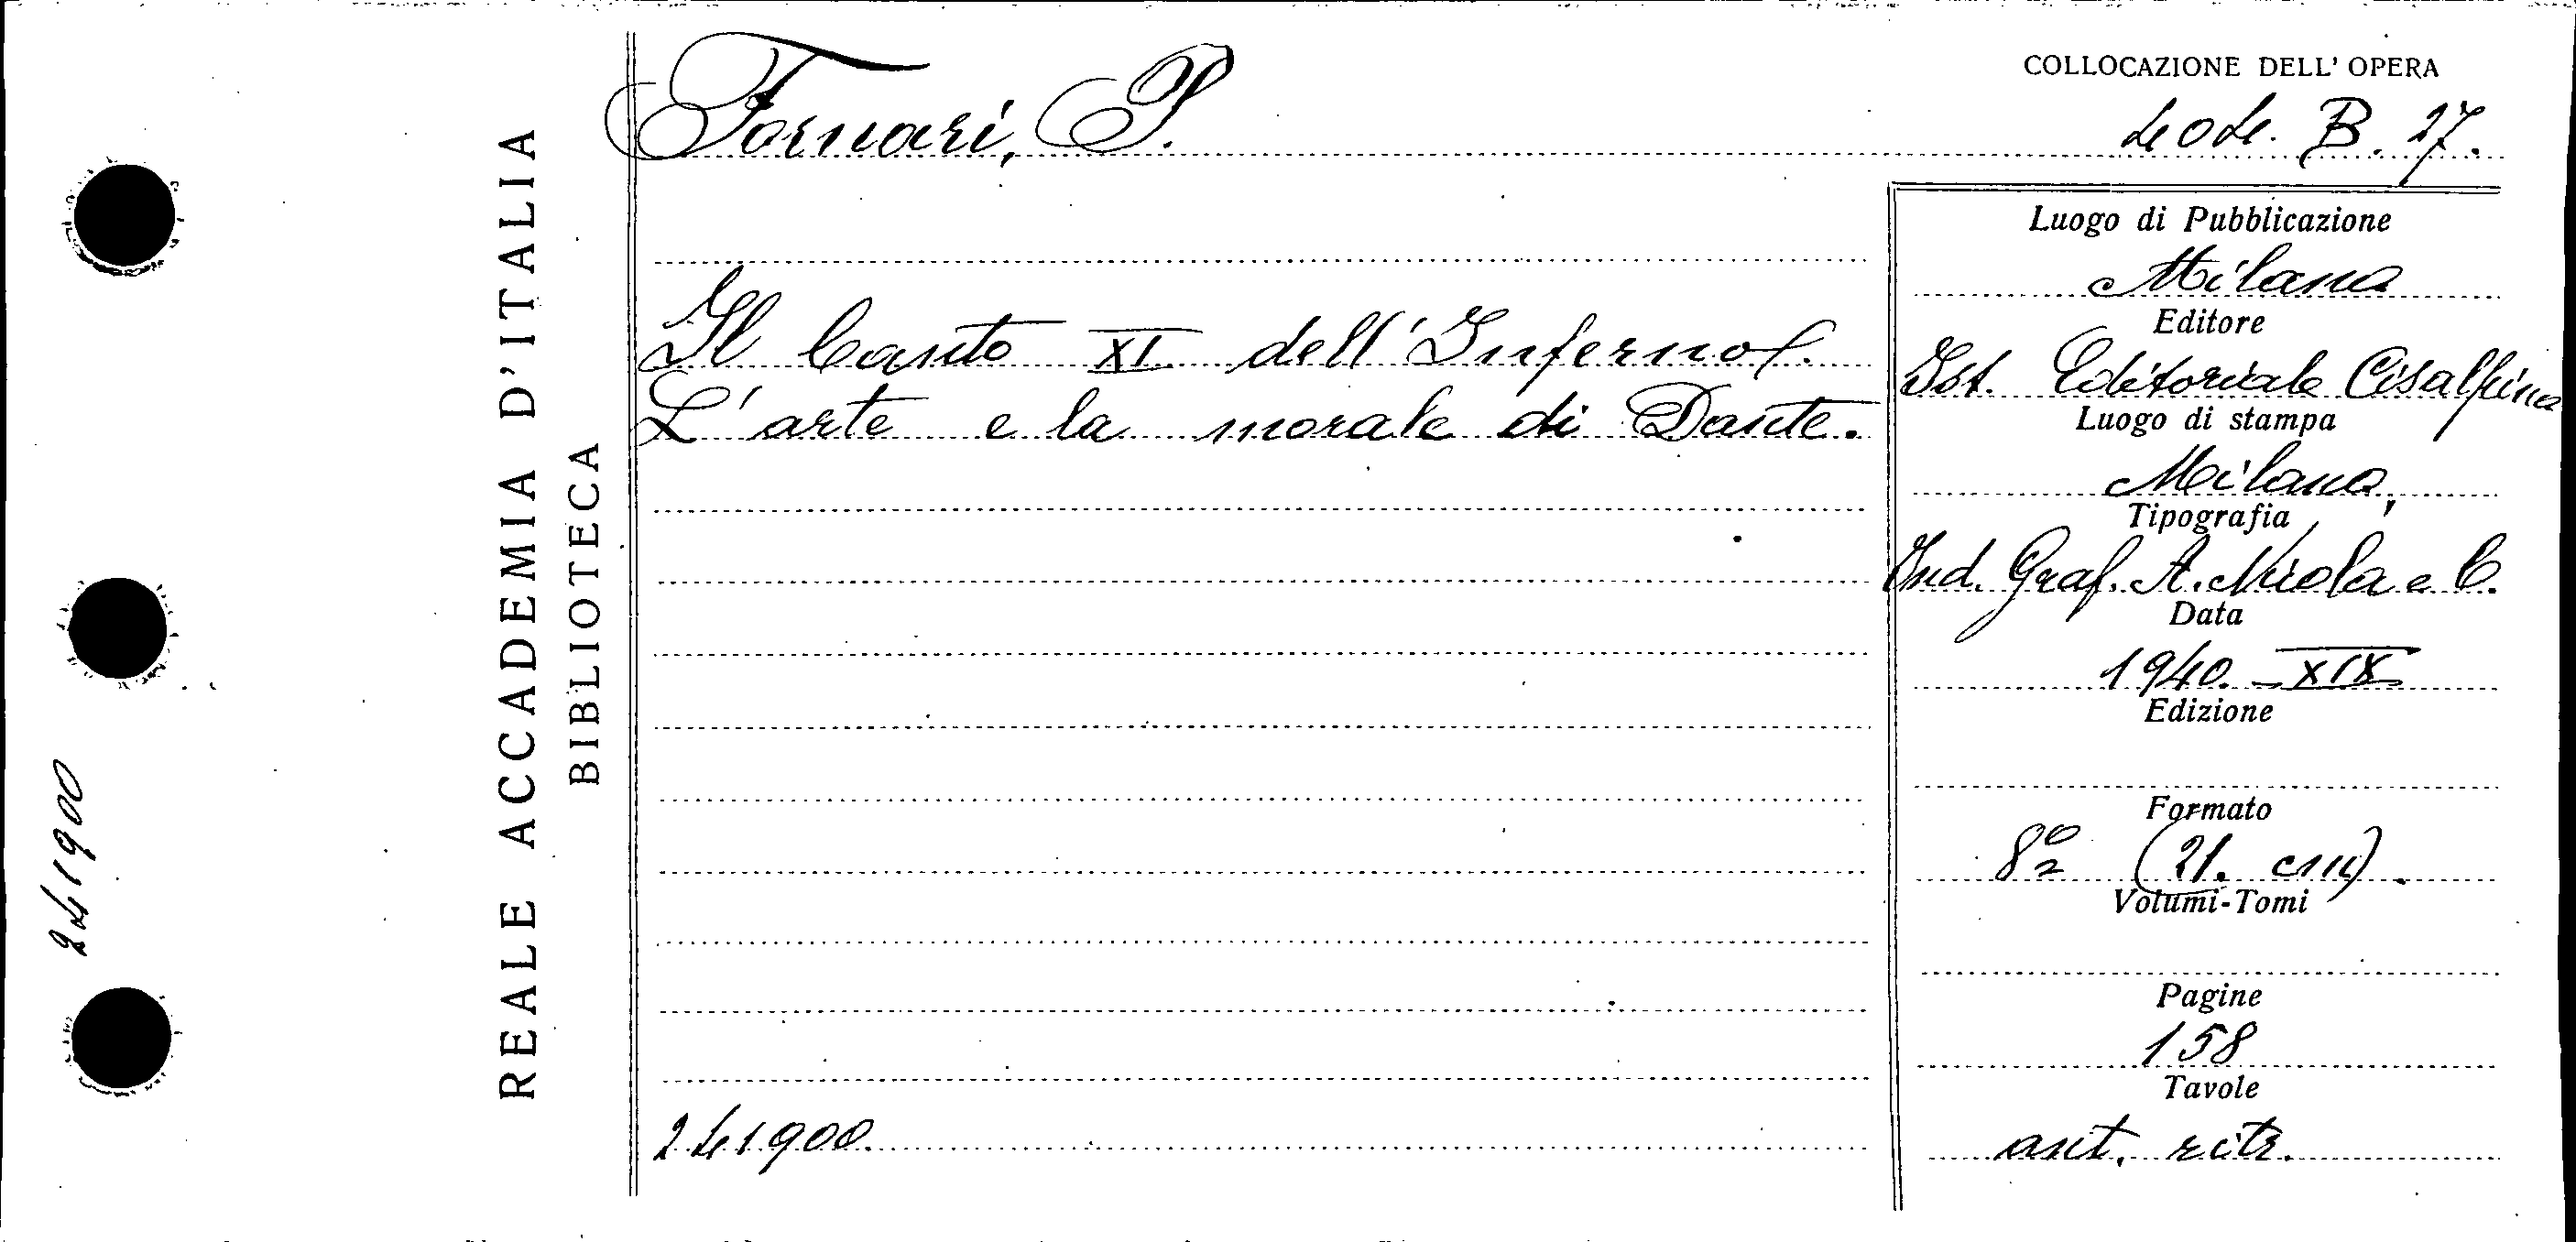 Fornari, P.
COLLOCAZIONE DELL' OPERA
404. B. 27.
REALE ACCADEMIA D'ITALIA
BIBLIOTECA
Il Canto XI dell'Inferno.
L'arte e la morale di Dante.
Luogo di Pubblicazione
Milano
Editore
Ist. Editoriale Cisalpino
Luogo di stampa
Milano,
Tipografia
Ind. Graf. A. Nicola e C.
Data
1940. XIX
Edizione
Formato
8º (21. cm).
Volumi-Tomi
Pagine
158
Tavole
ant. ritr.
241900.
241900